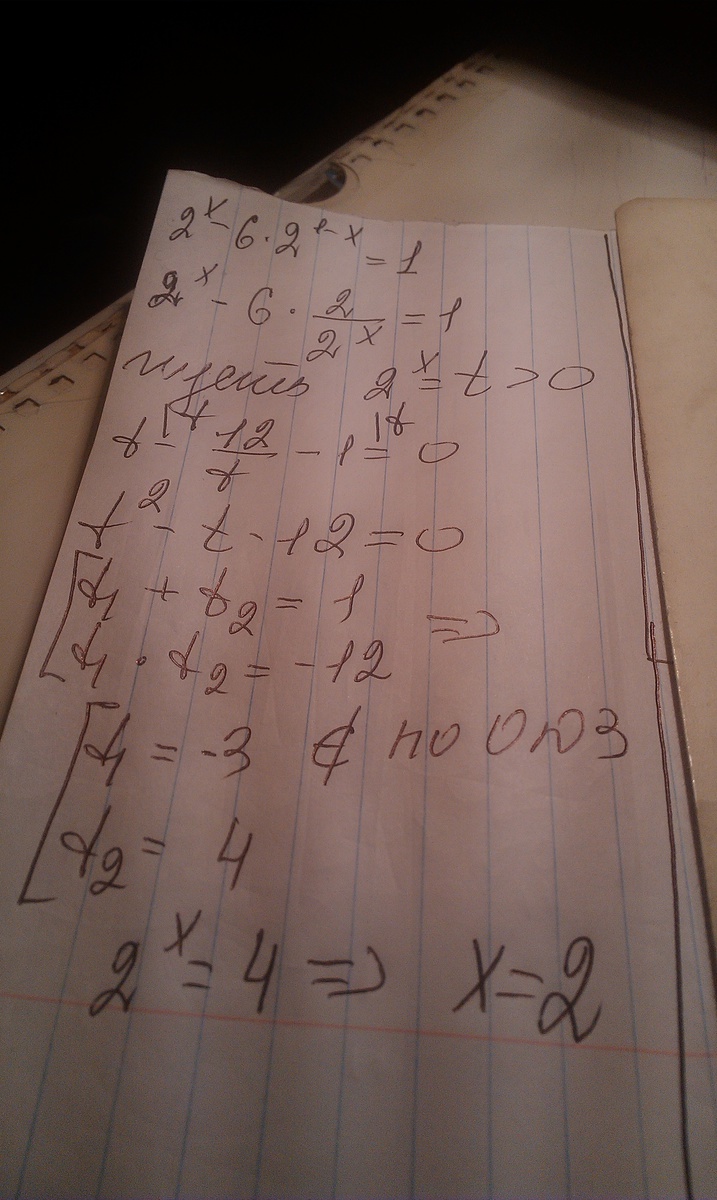 2^x - 6 · 2^{1-x} = 1
2^x - 6 · \frac{2}{2^x} = 1
пусть 2^x = t > 0
t - \frac{12}{t} - 1 = 0
t^2 - t - 12 = 0
[t_1 + t_2 = 1 =>
t_1 · t_2 = -12
[t_1 = -3 ∉ по ОДЗ
t_2 = 4
2^x = 4 => x = 2